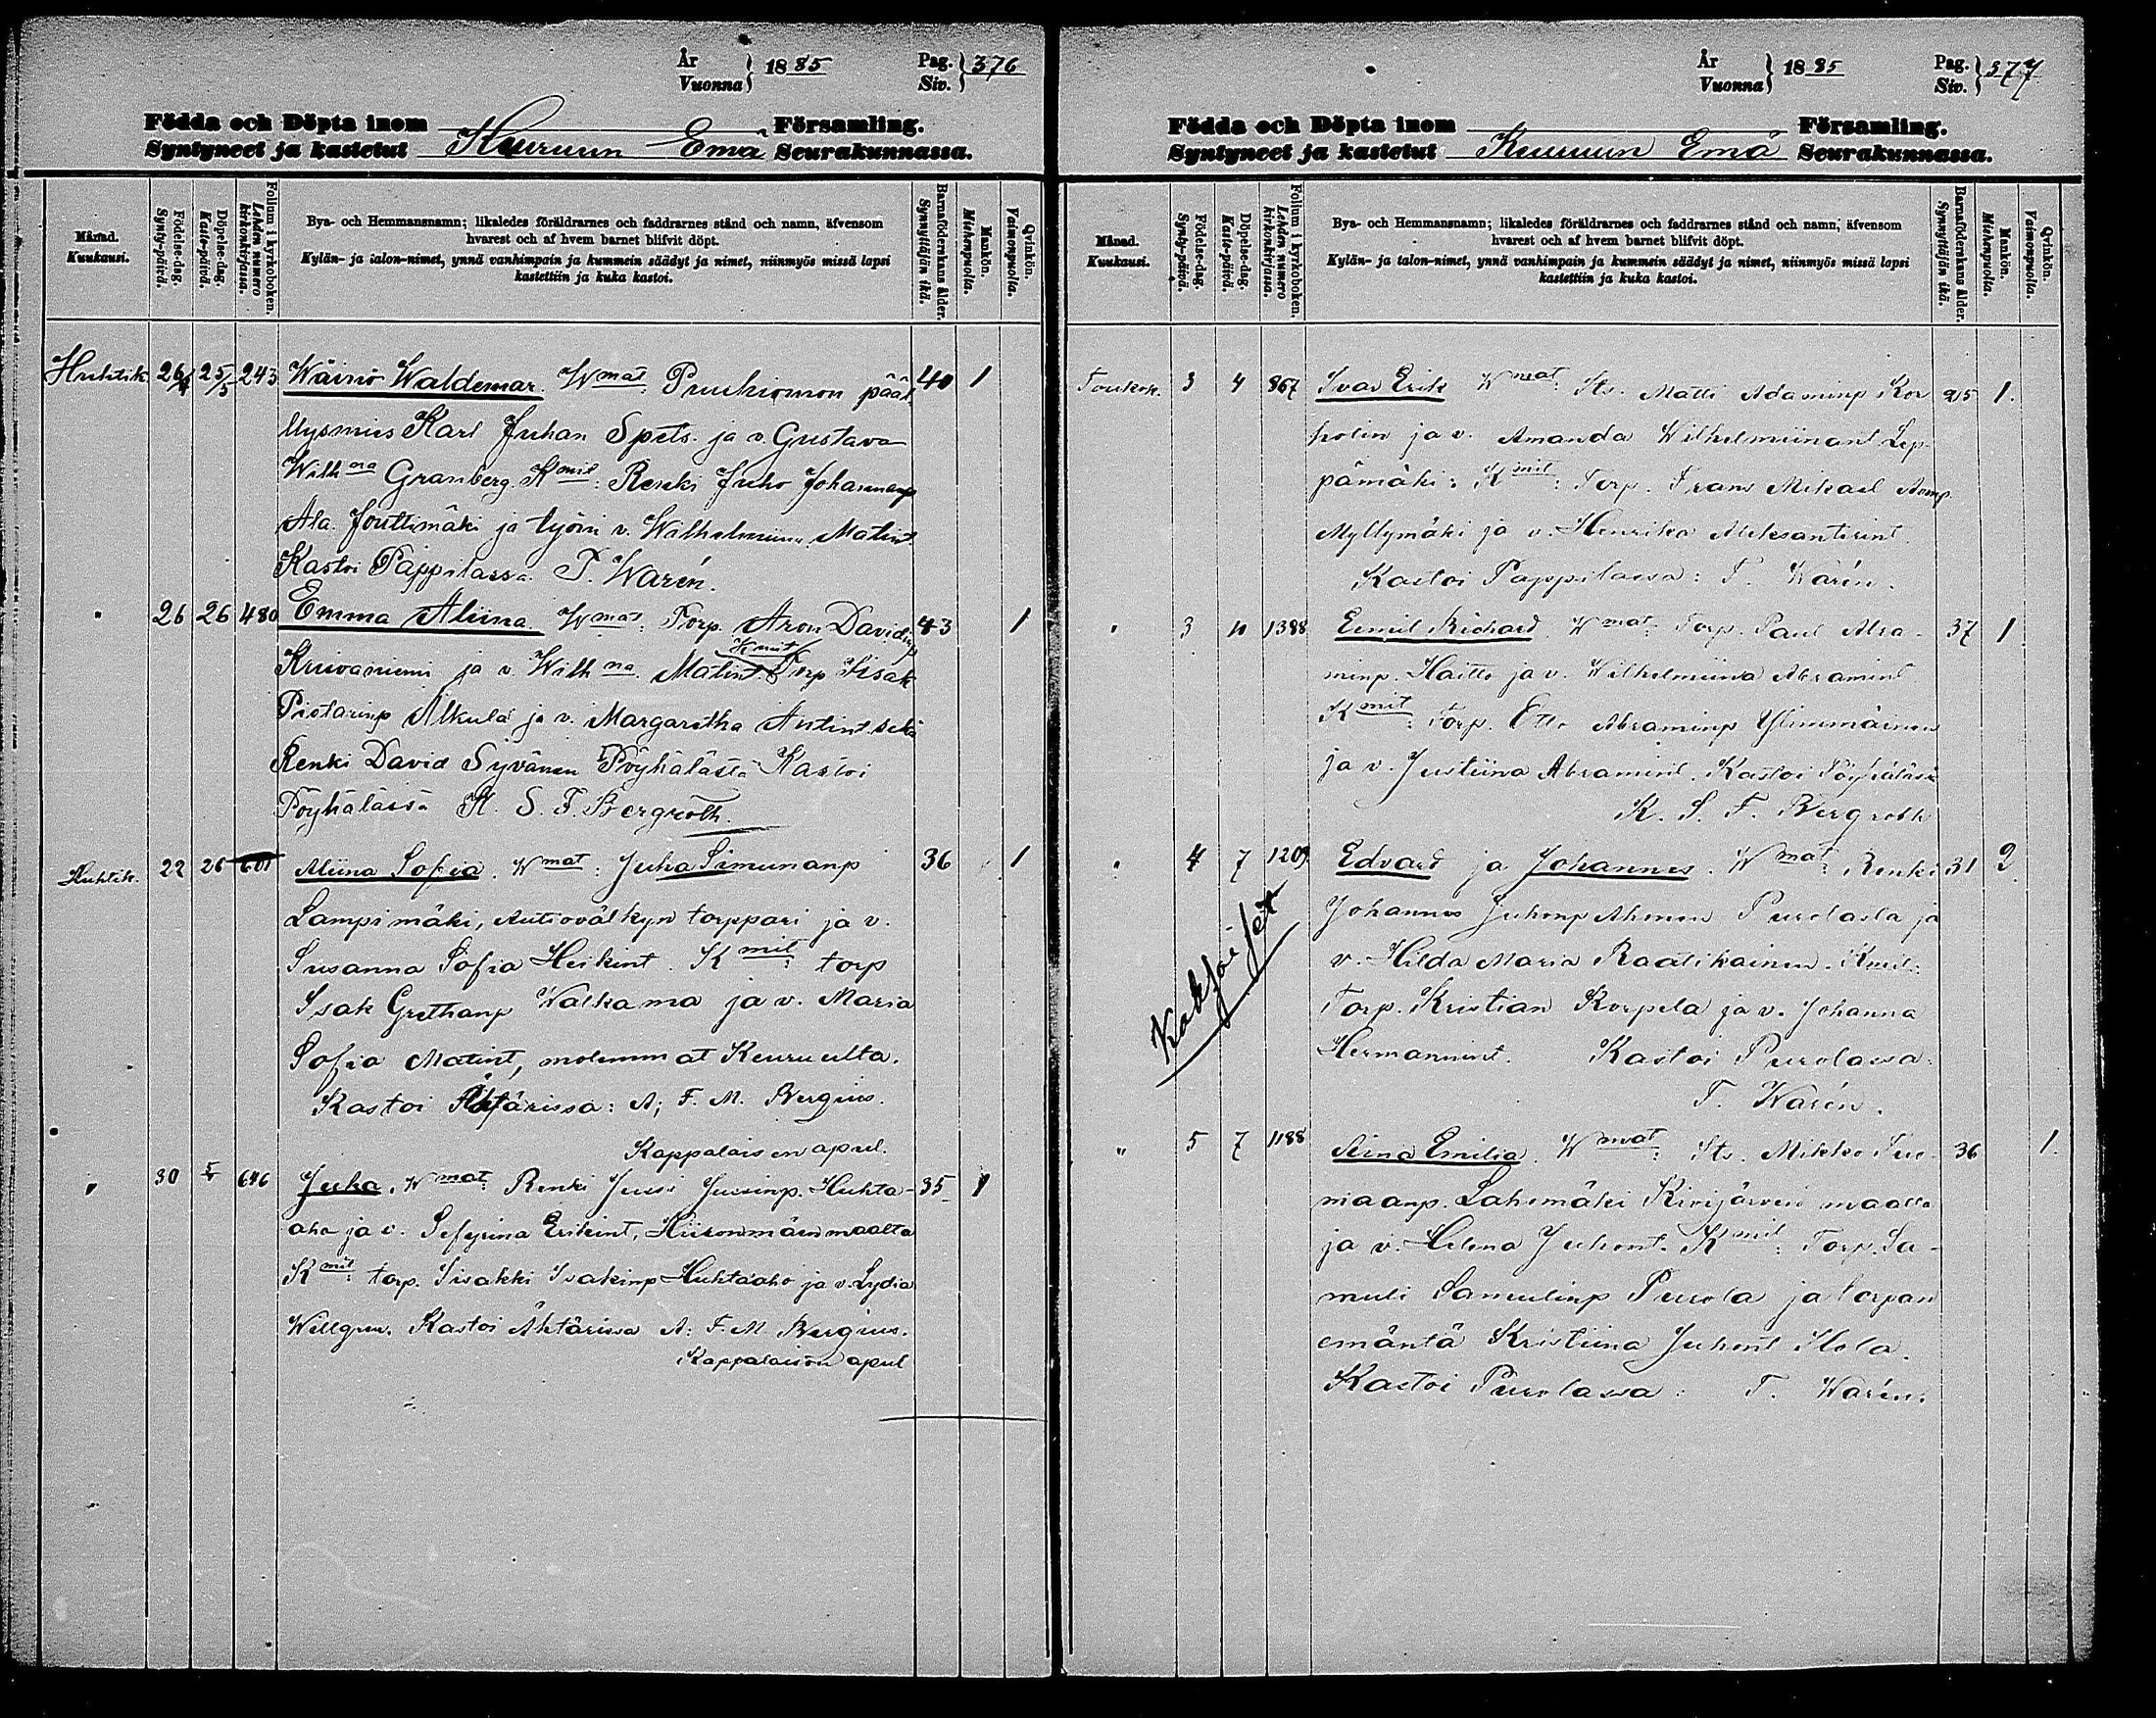 År
Vuonna } 1885 Pag.
Siv. } 376
Födda och Döpta inom Församling.
Syntyneet ja kastetut Keuruun Emä Seurakunnassa.
Månad.
Kuukausi.
Födelse-dag.
Synty-päivä.
Döpelse-dag.
Kaste-päivä.
Folium i kyrkoboken.
Lehden numero
kirkonkirjassa.
Bya- och Hemmansnamn; likaledes föräldrarnes och faddrarnes stånd och namn, äfvensom
hvarest och af hvem barnet blifvit döpt.
Kylän- ja talon-nimet, ynnä vanhimpain ja kummein säädyt ja nimet, niinmyös missä lapsi
kastettiin ja kuka kastoi.
Barnaföderskans ålder.
Synnyttäjän ikä.
Mankön.
Miehenpuolta.
Qvinkön.
Vaimonpuolta.
Huhtik. 26/4 25/5 243 Wäinö Waldemar. Wmat: Puuhiomon pääl 40 1
llysmies Karl Juhan Spets. ja v. Gustava
Wilhna Granberg. Kmit: Renki Juho Johannanp
Ala. Jouttimäki ja työm v. Wilhelmiina Matint.
Kastoi Pappilassa. T. Warén.
" 26 26 480 Emma Aliina. Wmat: Torp. Aron Davidinp 43 1
Kmit
Kuivaniemi ja v. Wilhna. Matint. Torp Iisak
Piotarinp Alkula ja v. Margaretha Antint. sekä
Renki David Syvänen Pöyhälästä Kastoi
Pöyhälässä K. S. F. Bergroth.
Huhtik. 22 26 601 Aliina Sofia. Wmat: Juha Simunanp 36 1
Lampimäki, Autiovälkyn torppari ja v.
Susanna Sofia Heikint. Kmit: torp
Isak Grethanp Walkama ja v. Maria
Sofia Matint, molemmat Keuruulta.
Kastoi Ähtärissä: A. F. M. Bergius.
Kappalaisen apul.
" 30 5 646 Juha. Wmat: Renki Jussi Jussinp. Huhta- 35 1
aho ja v. Sefyrina Erikint, Hiironmäen maalta
Kmit: torp. Iisakki Isakinp Huhtaaho ja v. Lydia
Willgren. Kastoi Ähtärissä A: F. M. Bergius.
Kappalaisen apul
År
Vuonna } 1885 Pag.
Siv. } 377
Födda och Döpta inom Församling.
Syntyneet ja kastetut Keuruun Emä Seurakunnassa.
Månad.
Kuukausi.
Födelse-dag.
Synty-päivä.
Döpelse-dag.
Kaste-päivä.
Folium i kyrkoboken.
Lehden numero
kirkonkirjassa.
Bya- och Hemmansnamn; likaledes föräldrarnes och faddrarnes stånd och namn, äfvensom
hvarest och af hvem barnet blifvit döpt.
Kylän- ja talon-nimet, ynnä vanhimpain ja kummein säädyt ja nimet, niinmyös missä lapsi
kastettiin ja kuka kastoi.
Barnaföderskans ålder.
Synnyttäjän ikä.
Mankön.
Miehenpuolta.
Qvinkön.
Vaimonpuolta.
Toukok. 3 4 867 Ivar Erik Wmat: Its. Matti Adaminp Kor 25 1.
holin ja v. Amanda Wilhelmiinant Lep-
pämäki: Kmit: Torp. Frans Mikael
Myllymäki ja v. Henrika Aleksanterint.
Kastoi Pappilassa: T. Warén.
" 3 10 1388 Eemil Richard. Wmat: Torp. Paul Abra- 37 1
minp. Haitto ja v. Wilhelmiina Abramint
Kmit: Torp. Otto Abraminp Ylimmäinen
ja v. Justiina Abramint. Kastoi Pöyhälässä
K. S. F. Bergroth
" 4 7 1209 Edvard ja Johannes. Wmat: Renki 31 2.
Johannes Juhonp Ahonen Purolasta ja
v. Hilda Maria Raatikainen. Kmit:
Torp. Kristian Korpela ja v. Johanna
Hermannint. Kastoi Purolassa:
T. Warén.
" 5 7 1188 Aina Emilia. Wmat: Its. Mikko Tuo- 36 1.
maanp. Lahomäki Kivijärven maalla
ja v. Helena Juhont. Kmit: Torp. Sa-
muli Samulinp Purola ja torpan
emäntä Kristiina Juhont Hola.
Kastoi Purolassa: T. Warén.